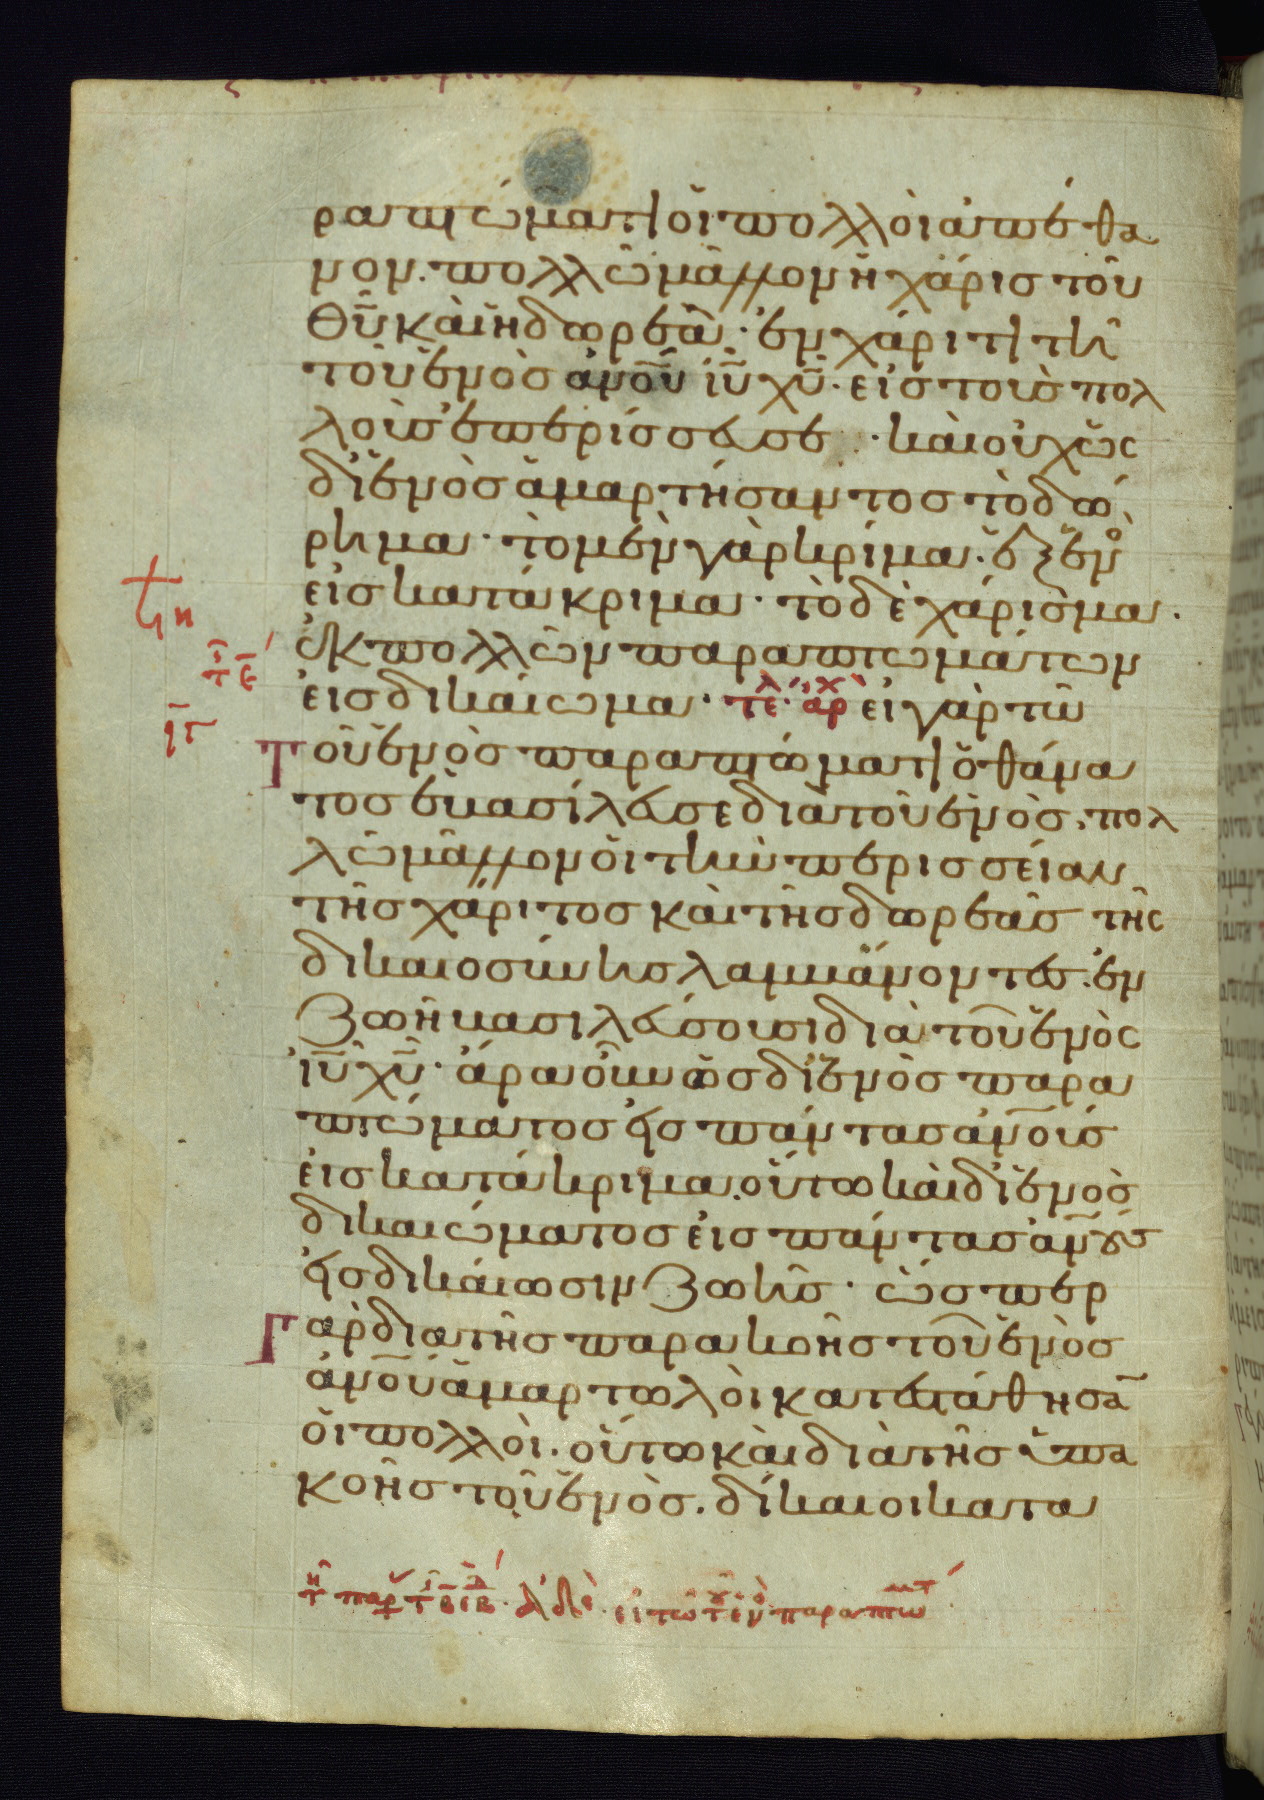 ραπτώματι οἱ πολλοὶ ἀπέθα
νον. πολλῶ μᾶλλον ἡ χάρις τοῦ
θῡ καὶ ἡ δωρεὰ· ἐν χάριτι τῆ
τοῦ ἑνὸς ἀνο̄υ ῑυ χῡ· εἰς τοὺς πολ
λοὺς ἐπερίσσευσε· καὶ οὐχ ὡς
δι ἑνὸς ἁμαρτήσαντος τὸ δώ
ρημα· τὸ μὲν γὰρ κρίμα· ἐξ ἑνὸ
εἰς κατάκριμα· τὸ δὲ χάρισμα·
ἐκ πολλῶν παραπτωμάτων
εἰς δικαίωμα· τε· ἀρχ εἰ γὰρ τῶ
τοῦ ἑνὸς παραπτώματι ὁ θάνα
τος ἐβασίλευσε διὰ τοῦ ἑνὸς, πολ
λῶ μᾶλλον οἱ τὴν περισσείαν
τῆς χάριτος καὶ τῆς δωρεᾶς τῆς
δικαιοσύνης λαμβάνοντες· ἐν
ζωῆ βασιλεύσουσι διὰ τοῦ ἑνὸς
ῑυ χῡ· ἄρα οὖν ὡς δι ἑνὸς παρα
πτώματος εἰς πάντας ἀνο̄υς
εἰς κατάκριμα. οὕτω καὶ δι ἑνὸς
δικαιώματος εἰς πάντας ἀνο̄υς
εἰς δικαίωσιν ζωῆς· ὥσπερ
γὰρ διὰ τῆς παρακοῆς τοῦ ἑνὸς
ἀνο̄υ ἁμαρτωλοὶ κατεστάθησᾱ
οἱ πολλοὶ. οὕτω καὶ διὰ τῆς ὑπα
κοῆς τοῦ ἑνὸς. δίκαιοι κατα
ἀδε· εἰ τῶ τ ἑνὸ παραπτωμτ